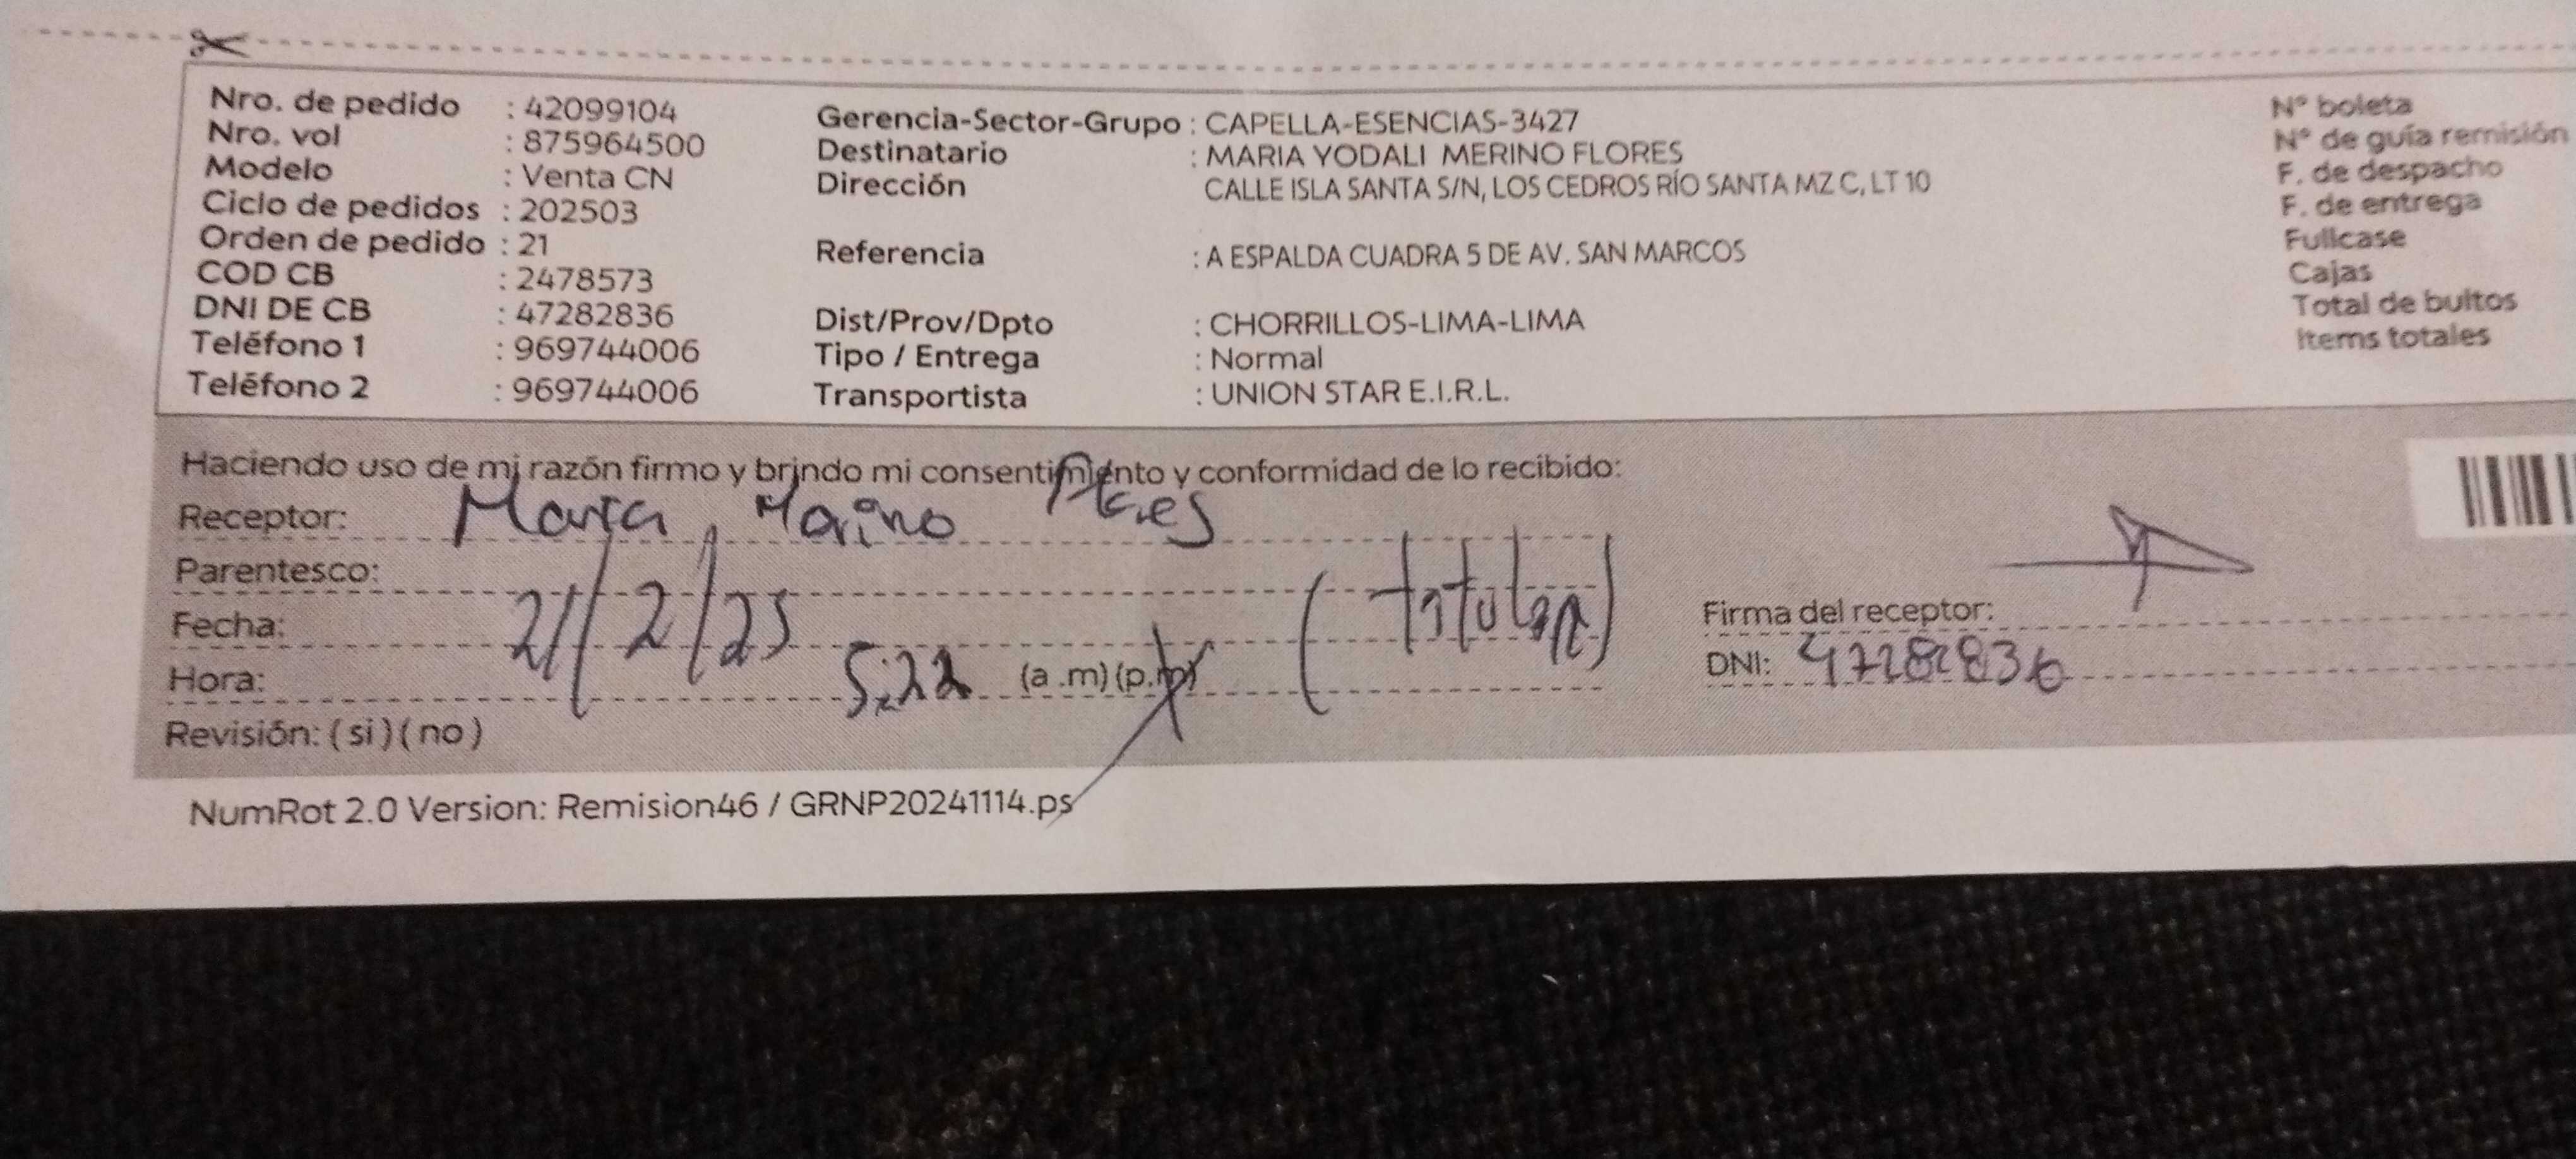 Nro. de pedido : 42099104
Nro. vol : 875964500
Modelo : Venta CN
Ciclo de pedidos : 202503
Orden de pedido : 21
COD CB : 2478573
DNI DE CB : 47282836
Teléfono 1 : 969744006
Teléfono 2 : 969744006
Gerencia-Sector-Grupo : CAPELLA-ESENCIAS-3427
Destinatario : MARIA YODALI MERINO FLORES
Dirección CALLE ISLA SANTA S/N, LOS CEDROS RÍO SANTA MZ C, LT 10
Referencia : A ESPALDA CUADRA 5 DE AV. SAN MARCOS
Dist/Prov/Dpto : CHORRILLOS-LIMA-LIMA
Tipo / Entrega : Normal
Transportista : UNION STAR E.I.R.L.
N° boleta
N° de guía remisión
F. de despacho
F. de entrega
Fullcase
Cajas
Total de bultos
Items totales
Haciendo uso de mi razón firmo y brindo mi consentimiento y conformidad de lo recibido:
Receptor: Maria Marino
Parentesco:
Fecha: 21/2/25 (titular)
Hora: 5:22 (a .m) (p.m)
Revisión: ( si ) ( no )
Firma del receptor:
DNI: 47282836
NumRot 2.0 Version: Remision46 / GRNP20241114.ps